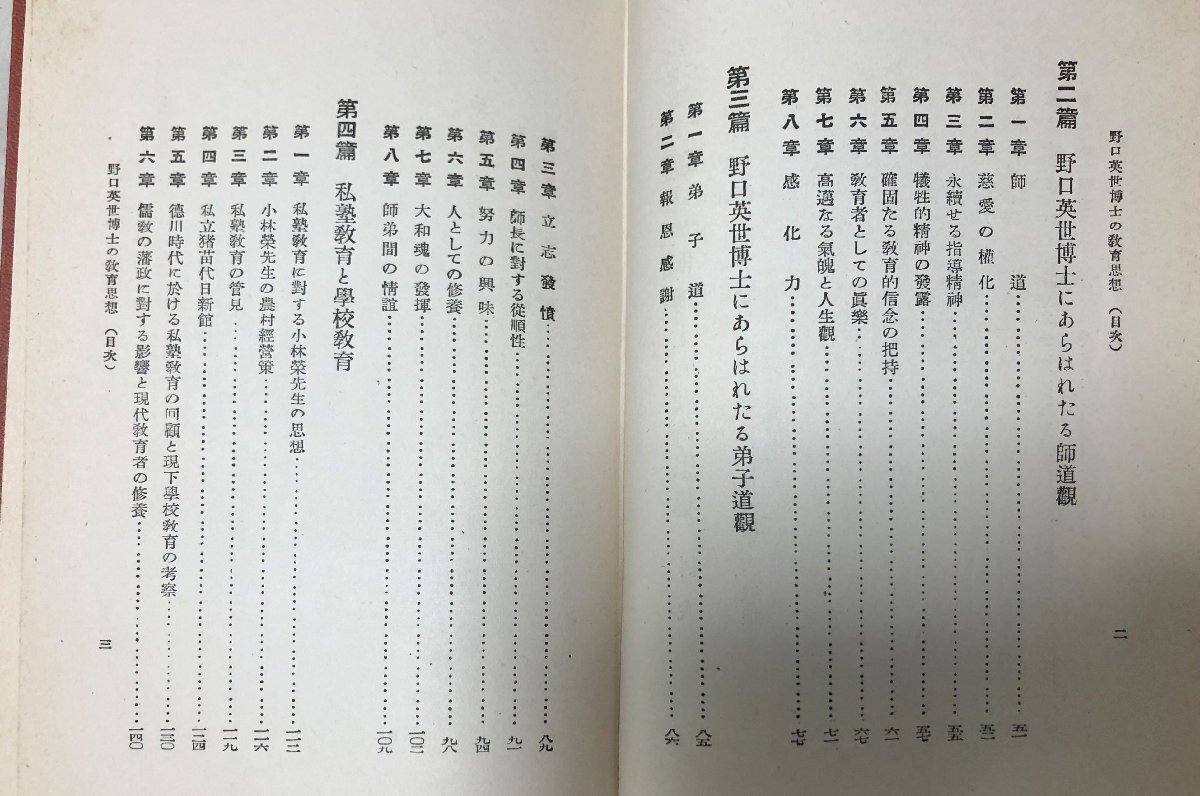 野口英世博士の敎育思想 (目次)
二
第二篇 野口英世博士にあらはれたる師道觀
第一章 師道……五一
第二章 慈愛の權化……五二
第三章 永續せる指導精神……五五
第四章 犧牲的精神の發露……五七
第五章 確固たる敎育的信念の把持……六一
第六章 敎育者としての眞樂……六七
第七章 高邁なる氣魄と人生觀……七一
第八章 感化力……七七
第三篇 野口英世博士にあらはれたる弟子道觀
第一章 弟子道……八五
第二章 報恩感謝……八六
第三章 立志發憤……八九
第四章 師長に對する從順性……九一
第五章 努力の興味……九四
第六章 人としての修養……九八
第七章 大和魂の發揮……一〇二
第八章 師弟間の情誼……一〇九
第四篇 私塾敎育と學校敎育
第一章 私塾敎育に對する小林榮先生の思想……一一二
第二章 小林榮先生の農村經營策……一一六
第三章 私塾敎育の管見……一一九
第四章 私立猪苗代日新館……一二四
第五章 德川時代に於ける私塾敎育の回顧と現下學校敎育の考察……一三〇
第六章 儒敎の藩政に對する影響と現代敎育者の修養……一四〇
野口英世博士の敎育思想 (目次)
三